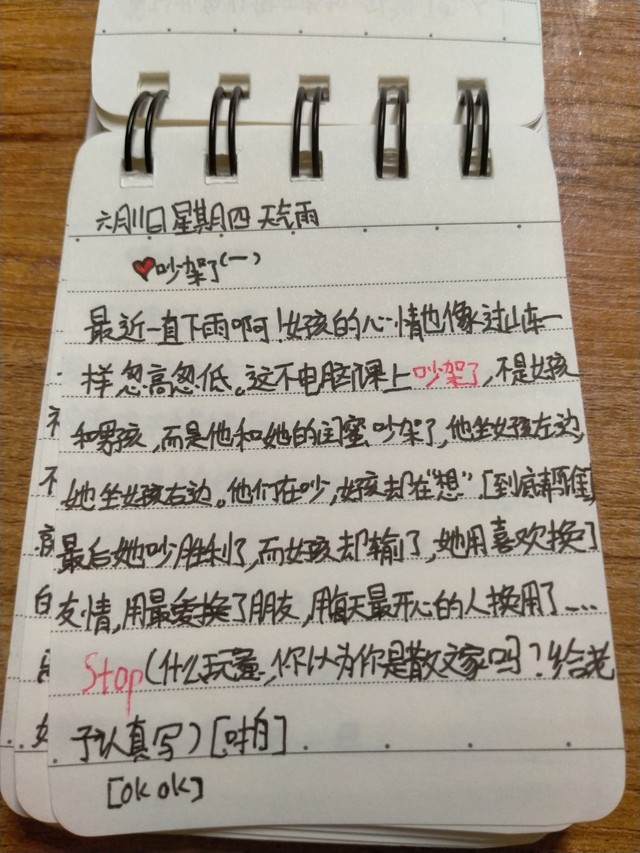 六月11日星期四 天气雨
吵架了(一)
最近一直下雨啊!女孩的心情也像过山车一
样忽高忽低。这不电脑课上吵架了,不是女孩
和男孩,而是他和她的闺蜜吵架了,他坐女孩左边,
她坐女孩右边。他们在吵,女孩却在“想”[到底帮谁]
最后她吵胜利了,而女孩却输了,她用喜欢换了
友情,用最爱换了朋友,用每天最开心的人换用了……
Stop(什么玩意,你以为你是散文家吗?给老
子认真写)[啪]
[OK OK]